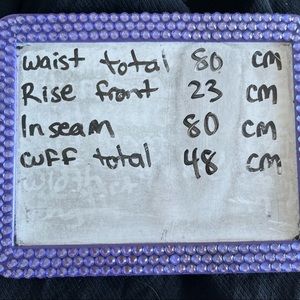 Waist total 80 cm
Rise front 23 cm
Inseam 80 cm
Cuff total 48 cm